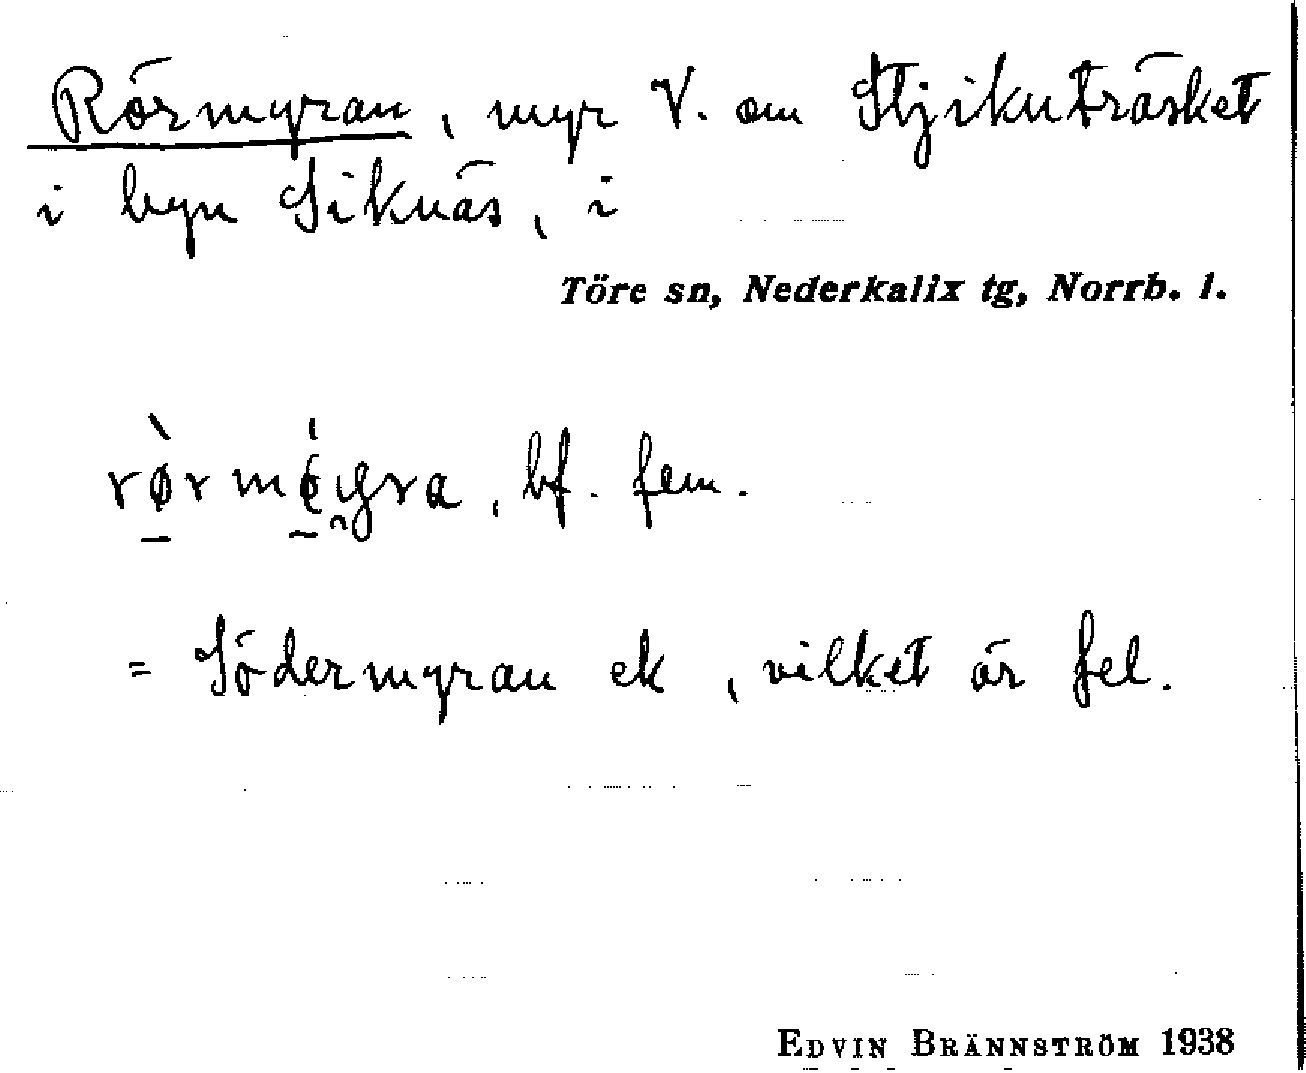 Rörmyran, myr V. om Stjikuträsket
i byn Siknäs, i
Töre sn, Nederkalix tg, Norrb. l.
bf. fem.
= Södermyran ek, vilket är fel.
EDVIN BRÄNNSTRÖM 1938